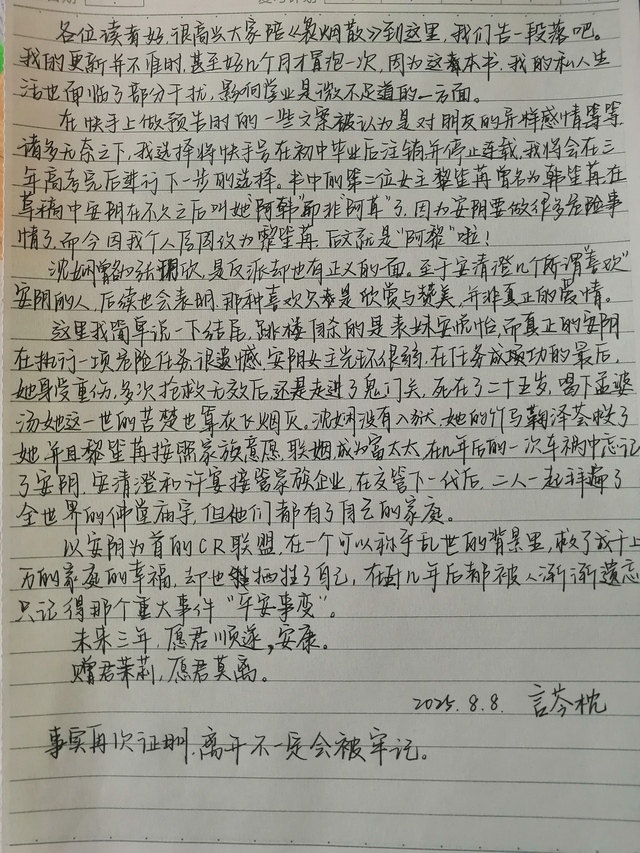 各位读者好,很高兴大家陪《衾烟散》到这里,我们告一段落吧。
我的更新并不准时,甚至好几个月才冒泡一次,因为这本书,我的私人生
活也面临了部分干扰,影响学业是微不足道的一方面。
在快手上做预告时的一些文案被认为是对朋友的异样感情等等,
诸多无奈之下,我选择将快手号在初中毕业后注销并停止连载,我将会在三
年高考完后进行下一步的选择。书中的第二位女主黎笙苒曾名为韩笙苒,在
草稿中安阴在不久之后叫她“阿韩”而非“阿苒”了,因为安阴要做很多危险事
情了,而今因我个人原因改为黎笙苒,后文就是“阿黎”啦!
沈娴曾名张珊欣,是反派却也有正义的一面。至于安清澄几个所谓“喜欢”
安阴的人,后续也会表明,那种喜欢只是欣赏与赞美,并非真正的爱情。
这里我简单说一下结尾,跳楼自杀的是表妹安悦怡,而真正的安阴
在执行一项危险任务,很遗憾,安阴女主光环很弱,在任务成功的最后,
她身受重伤,多次抢救无效后,还是走进了鬼门关,死在了二十五岁,喝下孟婆
汤她这一世的苦楚也算灰飞烟灭。沈娴没有入狱,她的竹马鞠泽荟救了
她,并且黎笙苒按照家族意愿,联姻成为富太太,在几年后的一次车祸中忘记
了安阴,安清澄和许宴接管家族企业,在交管下一代后,二人一起拜遍了
全世界的佛堂庙宇,但他们都有了自己的家庭。
以安阴为首的CR联盟,在一个可以称乎乱世的背景里,救了成千上
万的家庭的幸福,却也牺牲了自己,在几年后都被人渐渐遗忘
只记得那个重大事件“平安事变”。
未来三年,愿君顺遂,安康。
赠君茉莉,愿君莫离。
2025.8.8. 言芩枕
事实再次证明,离开不一定会被牢记。